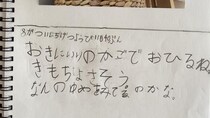 8がつ11にちげつようび
おきにいりのかごで おひるね
きもちよさそう
なんのゆめをみてるのかな。